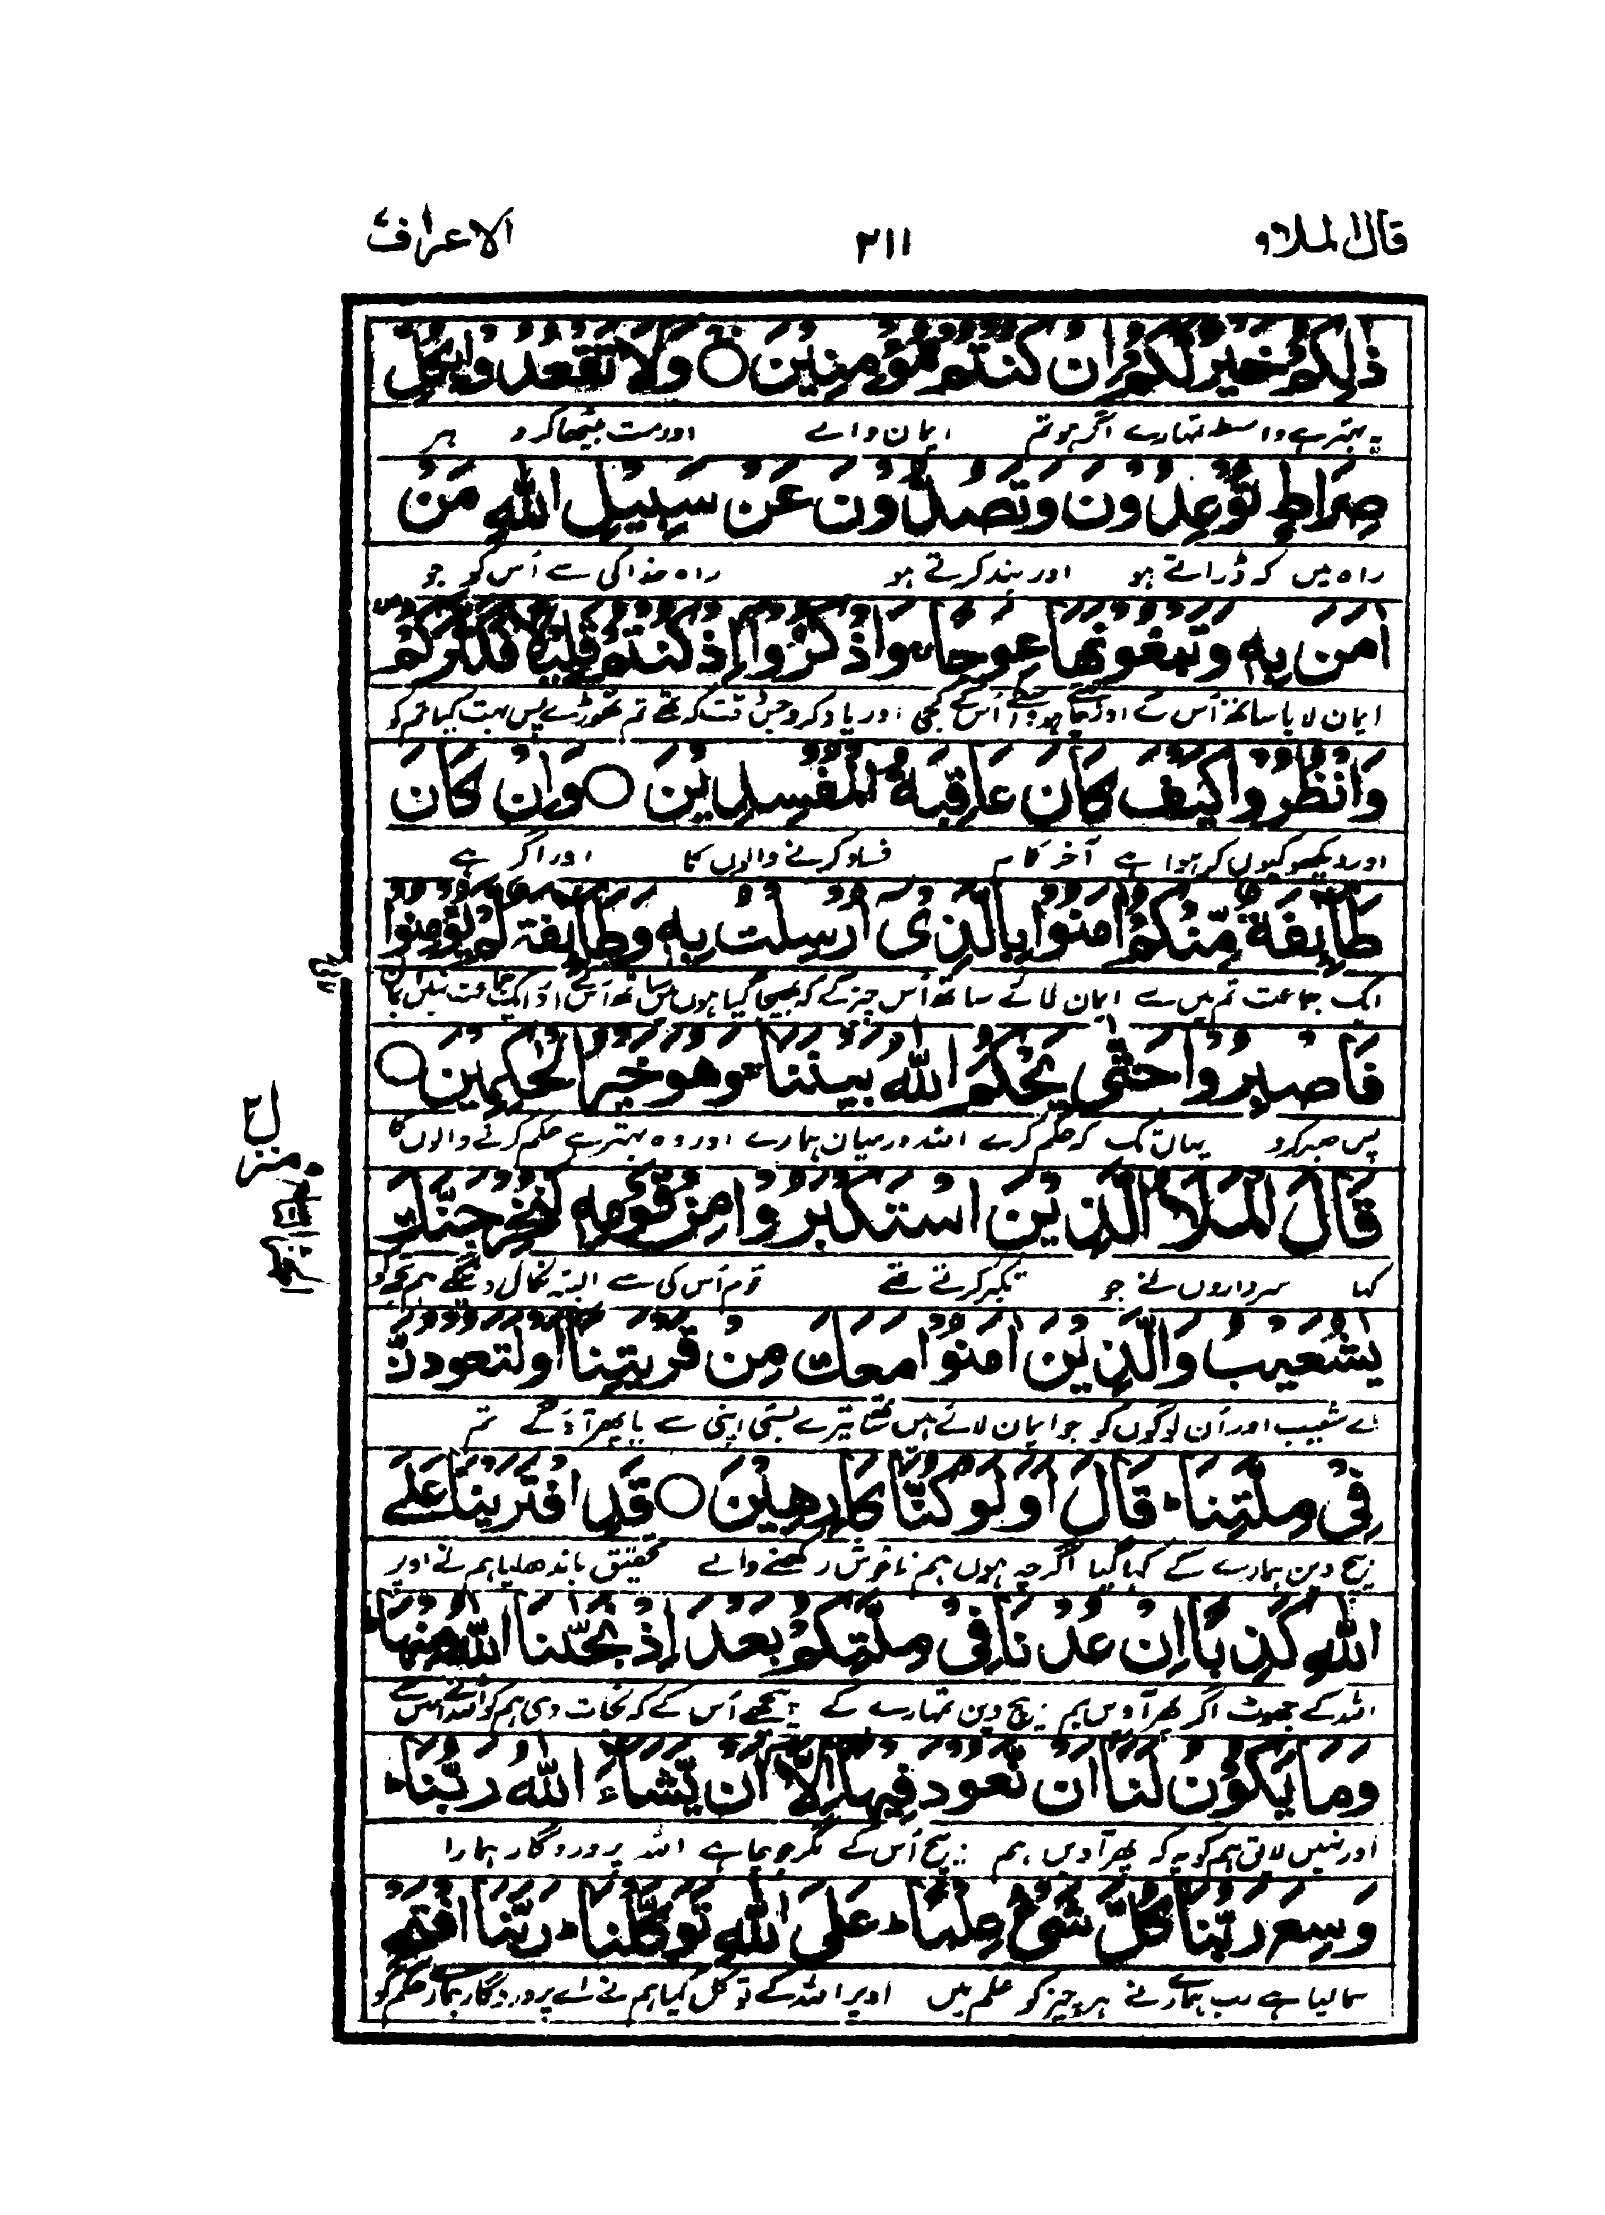 قال الملاء ۹
۲۱۱
الاعراف ۷
ذٰلِكُمْ خَيْرٌ لَّكُمْ اِنْ كُنْتُمْ مُّؤْمِنِيْنَ ○ وَلَا تَقْعُدُوْا بِكُلِّ
یہ بہتر ہے واسطے تمہارے اگر ہو تم ایمان والے اور مت بیٹھا کرو ہر
صِرَاطٍ تُوْعِدُوْنَ وَتَصُدُّوْنَ عَنْ سَبِيْلِ اللّٰهِ مَنْ
راہ میں کہ ڈراتے ہو اور بند کرتے ہو راہ خدا کی سے اُس کو جو
اٰمَنَ بِهٖ وَتَبْغُوْنَهَا عِوَجًا ۚ وَاذْكُرُوْۤا اِذْ كُنْتُمْ قَلِيْلًا فَكَثَّرَكُمْ ۪
ایمان لایا ساتھ اُس کے اور چاہتے ہو واسطے اُس کے کجی اور یاد کرو جس وقت کہ تھے تم تھوڑے پس بہت کیا تم کو
وَانْظُرُوْا كَيْفَ كَانَ عَاقِبَةُ الْمُفْسِدِيْنَ ○ وَاِنْ كَانَ
اور دیکھو کیوں کر ہوا ہے آخر کام فساد کرنے والوں کا اور اگر ہے
طَآئِفَةٌ مِّنْكُمْ اٰمَنُوْا بِالَّذِيْۤ اُرْسِلْتُ بِهٖ وَطَآئِفَةٌ لَّمْ يُؤْمِنُوْا
ایک جماعت تم میں سے ایمان لائے ساتھ اُس چیز کے کہ بھیجا گیا ہوں میں ساتھ اُس کے اور ایک جماعت نہیں ایمان
لائے
فَاصْبِرُوْا حَتّٰى يَحْكُمَ اللّٰهُ بَيْنَنَا ۚ وَهُوَ خَيْرُ الْحٰكِمِيْنَ ○
پس صبر کرو یہاں تک کہ حکم کرے اللہ درمیان ہمارے اور وہ بہتر ہے حکم کرنے والوں کا
منزل ۲
قَالَ الْمَلَاُ الَّذِيْنَ اسْتَكْبَرُوْا مِنْ قَوْمِهٖ لَنُخْرِجَنَّكَ
کہا سرداروں نے جو تکبر کرتے تھے قوم اُس کی سے البتہ نکال دینگے ہم تجھ کو
يٰشُعَيْبُ وَالَّذِيْنَ اٰمَنُوْا مَعَكَ مِنْ قَرْيَتِنَاۤ اَوْ لَتَعُوْدُنَّ
اے شعیب اور اُن لوگوں کو جو ایمان لائے ہیں ساتھ تیرے بستی اپنی سے یا پھر آؤ گے تم
فِيْ مِلَّتِنَا ؕ قَالَ اَوَلَوْ كُنَّا كَارِهِيْنَ ○ قَدِ افْتَرَيْنَا عَلَى
بیچ دین ہمارے کے کہا کیا اگرچہ ہوں ہم ناخوش رکھنے والے تحقیق باندھ لیا ہم نے اوپر
اللّٰهِ كَذِبًا اِنْ عُدْنَا فِيْ مِلَّتِكُمْ بَعْدَ اِذْ نَجّٰىنَا اللّٰهُ مِنْهَا ؕ
اللہ کے جھوٹ اگر پھر آویں ہم بیچ دین تمہارے کے پیچھے اُس کے کہ نجات دی ہم کو اللہ نے اس سے
وَمَا يَكُوْنُ لَنَاۤ اَنْ نَّعُوْدَ فِيْهَاۤ اِلَّاۤ اَنْ يَّشَآءَ اللّٰهُ رَبُّنَا ؕ
اور نہیں لائق ہم کو یہ کہ پھر آویں ہم بیچ اُس کے مگر جو چاہے اللہ پروردگار ہمارا
وَسِعَ رَبُّنَا كُلَّ شَيْءٍ عِلْمًا ؕ عَلَى اللّٰهِ تَوَكَّلْنَا ؕ رَبَّنَا افْتَحْ
سما لیا ہے رب ہمارے نے ہر چیز کو علم میں اوپر اللہ کے توکل کیا ہم نے اے پروردگار ہمارے حکم کر